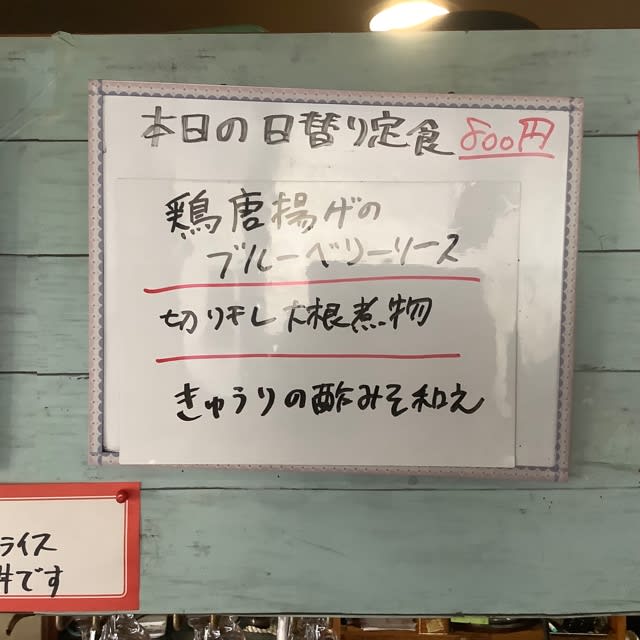 本日の日替り定食 800円
鶏唐揚げの
ブルーベリーソース
切り干し大根煮物
きゅうりの酢みそ和え
ライス
です